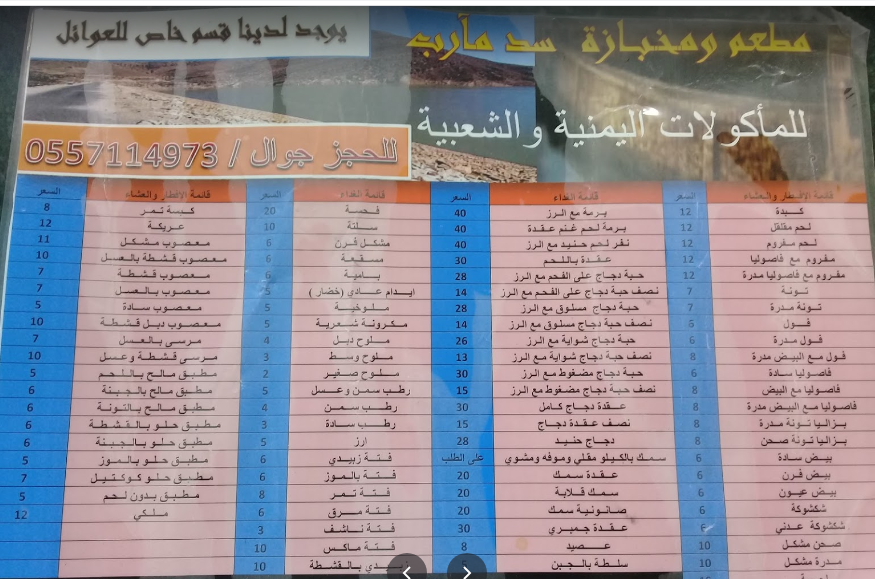 مطعم ومخبازة سد مأرب
يوجد لدينا قسم خاص للعوائل
للمأكولات اليمنية والشعبية
للحجز جوال / 0557114973
قائمة الإفطار والعشاء السعر
كبدة 12
لحم مقلقل 12
لحم مفروم 12
مفروم مع فاصوليا 12
مفروم مع فاصوليا مدرة 12
تونة 7
تونة مدرة 7
فول 5
فول مدرة 6
فول مع البيض مدرة 8
فاصوليا سادة 6
فاصوليا مع البيض 8
فاصوليا مع البيض مدرة 8
بزاليا تونة مدرة 8
بزاليا تونة صحن 8
بيض سادة 6
بيض فرن 6
بيض عيون 6
شكشوكة 6
شكشوكة عدني 6
صحن مشكل 10
مدرة مشكل 10
قائمة الغداء السعر
برمة مع الرز 40
برمة لحم غنم عقدة 40
نفر لحم حنيد مع الرز 40
عقدة باللحم 30
حبة دجاج على الفحم مع الرز 28
نصف حبة دجاج على الفحم مع الرز 14
حبة دجاج مسلوق مع الرز 28
نصف حبة دجاج مسلوق مع الرز 14
حبة دجاج شواية مع الرز 26
نصف حبة دجاج شواية مع الرز 13
حبة دجاج مضغوط مع الرز 30
نصف حبة دجاج مضغوط مع الرز 15
عقدة دجاج كامل 30
نصف عقدة دجاج 15
دجاج حنيد 28
سمك بالكيلو مقلي وموفه ومشوي على الطلب
عقدة سمك 20
سمك قلابة 20
صانونية سمك 20
عقدة جمبري 30
عصيد 8
سلطة بالجبن
قائمة الغداء السعر
فحسة 20
سلتة 10
مشكل فرن 6
مسقعة 6
بامية 6
ايدام عادي (خضار) 5
ملوخية 5
مكرونة شعرية 5
ملوح دبل 4
ملوح وسط 3
ملوح صغير 2
رطب سمن وعسل 5
رطب سمن 4
رطب سادة 3
ارز 5
فتة زبيدي 6
فتة بالموز 6
فتة تمر 8
فتة مرق 6
فتة ناشف 3
فتة ماكس 10
بالقشطة 10
قائمة الإفطار والعشاء السعر
كبسة تمر 8
عريكة 12
معصوب مشكل 11
معصوب قشطة بالعسل 10
معصوب قشطة 7
معصوب بالعسل 7
معصوب سادة 5
معصوب دبل قشطة 10
مرسى بالعسل 7
مرسى قشطة وعسل 10
مطبق مالح باللحم 5
مطبق مالح بالجبنة 6
مطبق مالح بالتونة 6
مطبق حلو بالقشطة 6
مطبق حلو بالجبنة 6
مطبق حلو بالموز 5
مطبق حلو كوكتيل 7
مطبق بدون لحم 5
ملكي 12